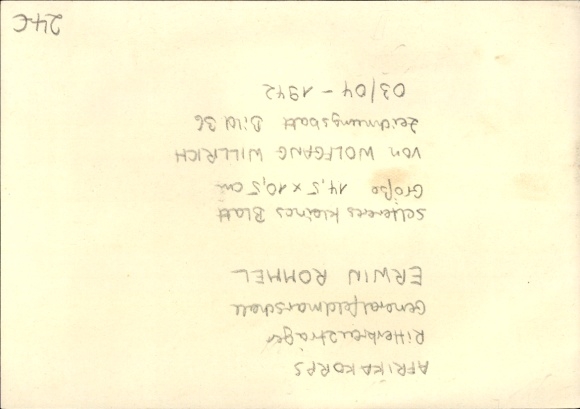 AFRIKAKORPS
Ritterkreuzträger
Generalfeldmarschall
ERWIN ROMMEL
selteneres kleines Blatt
Größe 14,5 x 10,5 cm
von WOLFGANG WILLRICH
Zeichnungsbatt Bild 36
03/04 - 1942
24€